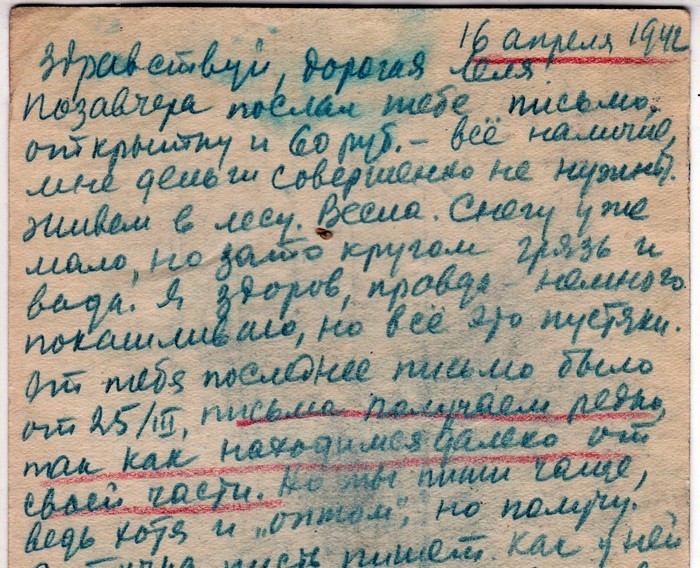 16 апреля 1942
Здравствуй, дорогая Леля!
Позавчера послал тебе письмо,
открытку и 60 руб. – всё наличие,
мне деньги совершенно не нужны.
Живем в лесу. Весна. Снегу уже
мало, но зато кругом грязь и
вода. Я здоров, правда немного
покашливаю, но всё это пустяки.
От тебя последнее письмо было
от 25/III, письма получаем редко,
так как находимся далеко от
своей части. Но ты пиши чаще,
ведь хотя и „оптом“, но получу.
пусть пишет. Как у ней